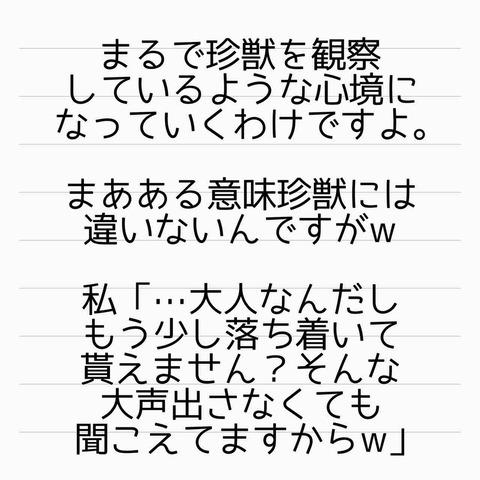 まるで珍獣を観察
しているような心境に
なっていくわけですよ。
まああある意味珍獣には
違いないんですがw
私「…大人なんだし
もう少し落ち着いて
貰えません？そんな
大声出さなくても
聞こえてますからw」